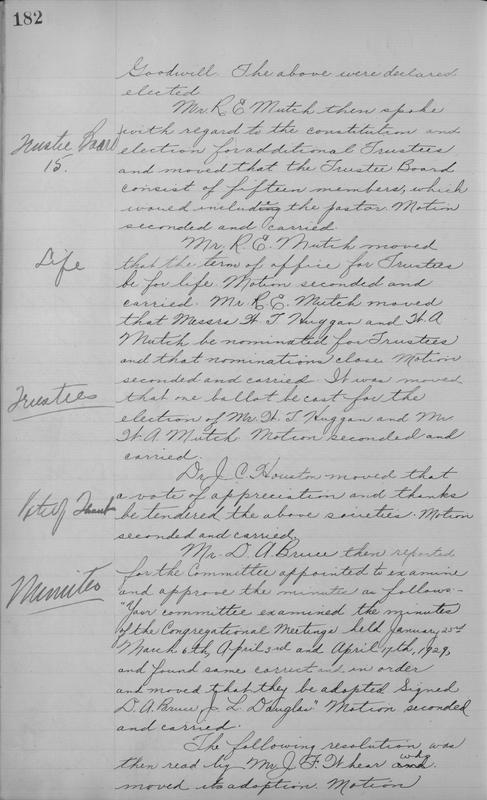 182
Goodwill. The above were declared
elected
Mr. R. E. Mutch then spoke
Trustee Board
15.
with regard to the constitution and
election for additional Trustees
and moved that the Trustee Board
consist of fifteen members, which
would including the pastor. Motion
seconded and carried.
Mr. R. E. Mutch moved
Life
that the term of office for Trustees
be for life. Motion seconded and
carried. Mr. R. E. Mutch moved
that Messrs H. T. Huggan and W. A
Mutch be nominated for Trustees
and that nominations close. Motion
seconded and carried. It was moved
Trustees
that one ballot be cast for the
election of Mr. H. T. Huggan and Mr
W. A Mutch Motion seconded and
carried.
Dr. J. C. Houston moved that
Vote of Thanks
a vote of appreciation and thanks
be tendered the above societies. Motion
seconded and carried.
Mr. D. A Bruce then reported
Minutes
for the Committee appointed to examine
and approve the minutes as follows-
"Your committee examined the minutes
of the Congregational Meetings held January 23rd
March 6th, April 3rd and April 17th, 1929,
and found same correct and in order
and moved that they be adopted Signed
D. A. Bruce J. L. Douglas" Motion seconded
and carried.
The following resolution was
then read by Mr. J. F. Whear who and
moved its adoption. Motion